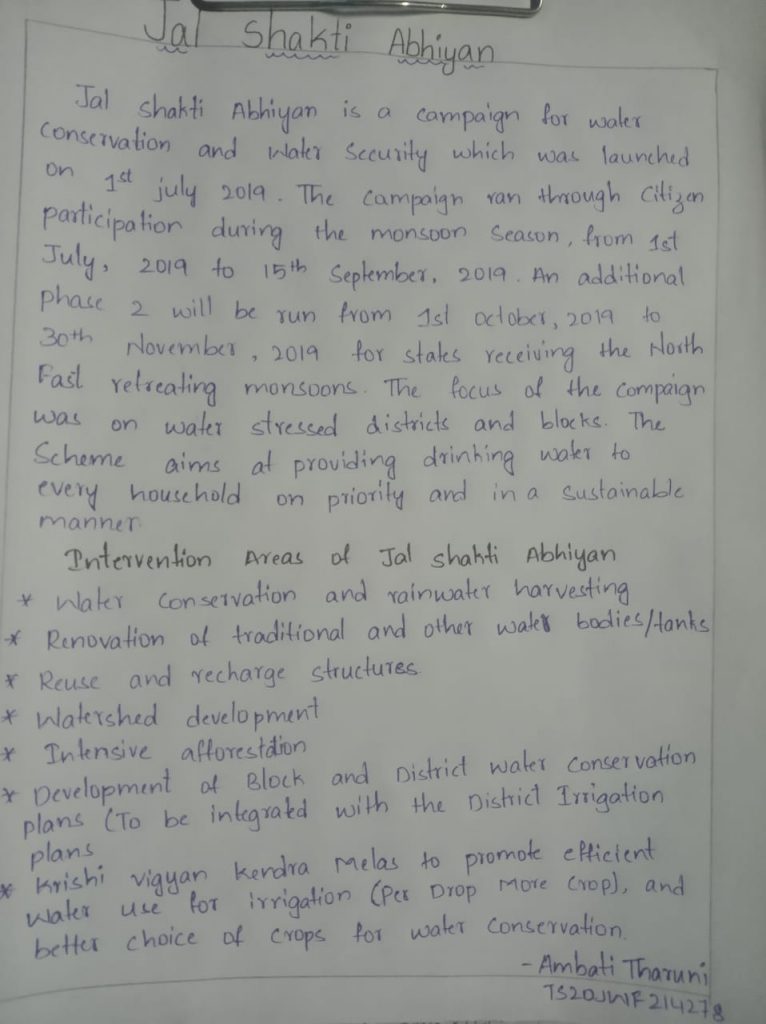 Jal Shakti Abhiyan
Jal shakti Abhiyan is a campaign for water
Conservation and Water Security which was launched
on 1st july 2019. The Campaign ran through Citizen
participation during the monsoon Season, from 1st
July, 2019 to 15th September, 2019. An additional
phase 2 will be run from 1st october, 2019 to
30th November, 2019 for states receiving the North
East retreating monsoons. The focus of the Compaign
was on water stressed districts and blocks. The
Scheme aims at providing drinking water to
every household on priority and in a sustainable
manner.
Intervention Areas of Jal shakti Abhiyan
* Water conservation and rainwater harvesting
* Renovation of traditional and other water bodies/tanks
* Reuse and recharge structures
* Watershed development
* Intensive afforestation
* Development of Block and District water Conservation
plans (To be integrated with the District Irrigation
plans
* Krishi vigyan Kendra Melas to promote efficient
water use for irrigation (Per Drop More Crop), and
better choice of crops for water Conservation.
- Ambati Tharuni
TS20JWF214278